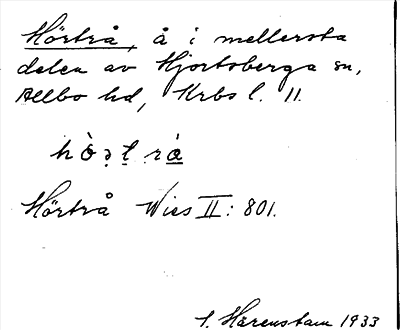 Hörtrå, å i mellersta
delen av Hjortsberga sn,
Allbo hd, Krbs l. 11.
Hörtrå Wies II: 801.
1933